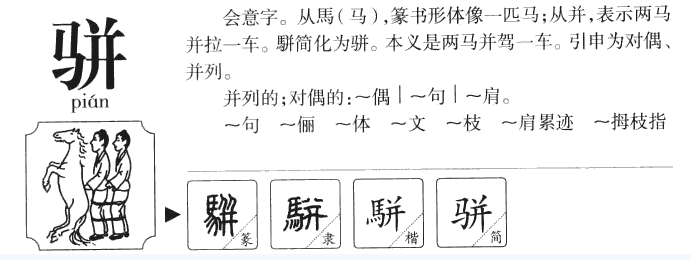 骈
pián
会意字。从馬(马),篆书形体像一匹马;从并,表示两马
并拉一车。駢简化为骈。本义是两马并驾一车。引申为对偶、
并列。
并列的;对偶的:～偶|～句|～肩。
～句 ～俪 ～体 ～文 ～枝 ～肩累迹 ～拇枝指
駢 篆 駢 隶 駢 楷 骈 简